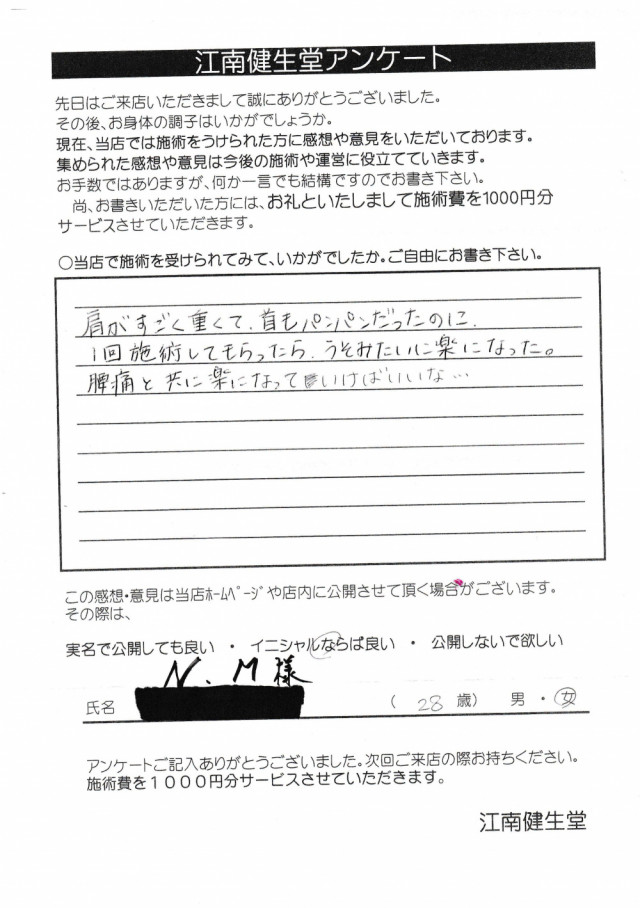 江南健生堂アンケート
先日はご来店いただきまして誠にありがとうございました。
その後、お身体の調子はいかがでしょうか。
現在、当店では施術をうけられた方に感想や意見をいただいております。
集められた感想や意見は今後の施術や運営に役立てていきます。
お手数ではありますが、何か一言でも結構ですのでお書き下さい。
尚、お書きいただいた方には、お礼といたしまして施術費を1000円分
サービスさせていただきます。
○当店で施術を受けられてみて、いかがでしたか。ご自由にお書き下さい。
肩がすごく重くて、首もパンパンだったのに、
1回施術してもらったら、うそみたいに楽になった。
腰痛と共に楽になって いけばいいな…
この感想・意見は当店ﾎｰﾑﾍﾟｰｼﾞや店内に公開させて頂く場合がございます。
その際は、
実名で公開しても良い ・ イニシャルならば良い ・ 公開しないで欲しい
N.M様
氏名 ( 28 歳) 男 ・ 女
アンケートご記入ありがとうございました。次回ご来店の際お持ちください。
施術費を１０００円分サービスさせていただきます。
江南健生堂